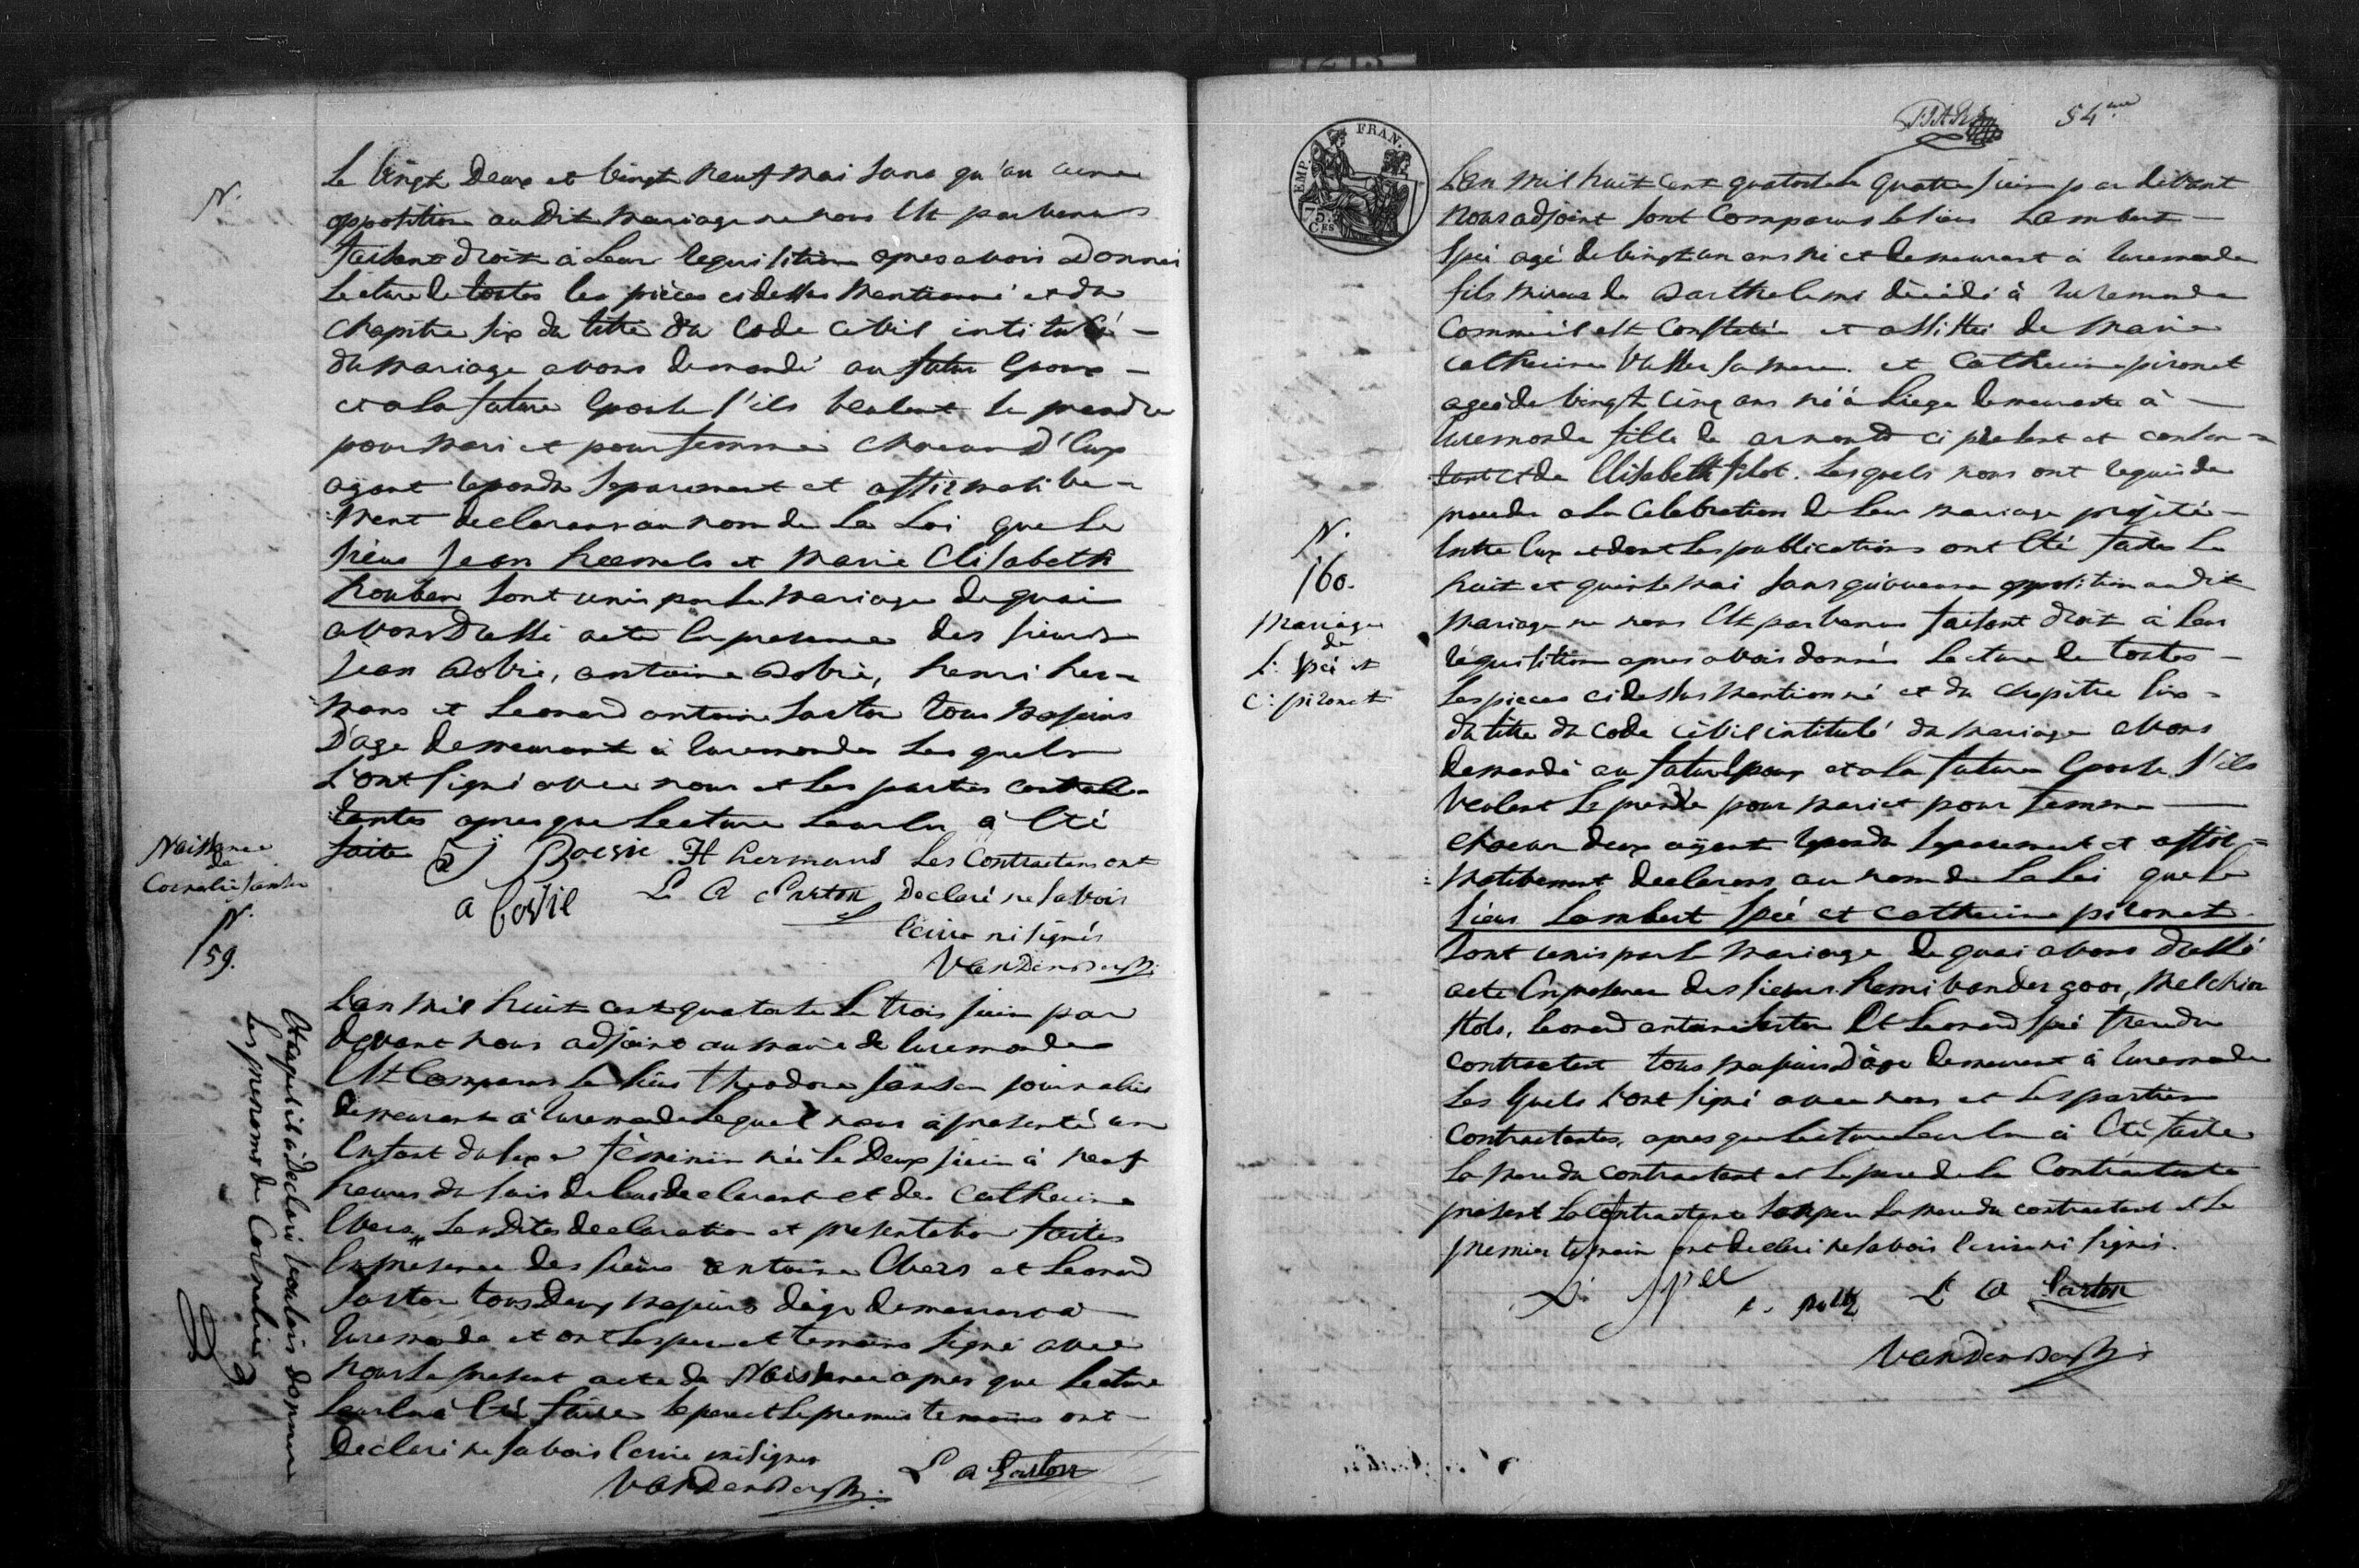 N.
le vingt deux et vingt neuf mai sans qu'au cune
opposition au dit mariage ne nous est parvenus
faisant droit à leur requisition apres avoir donné
lecture de toutes les pièces ci dessus mentionné et du
chapitre six du titre du Code Civil intitulé –
du mariage avons demandé au futur epoux –
et a la future epouse s'ils veulent se prendre
pour mari et pour femme chacun d'eux
ayant repondu separement et affirmative –
ment declarons au nom de la Loi que le
sieur Jean heemels et Marie Elisabeth
houben sont unis par le mariage de quoi
avons dressé acte en presence des sieurs
Jean dobie, antoine dobie, henri her –
mans et Leonard antoine sarton tous majeurs
d'age demeurant à ruremonde les quels
l'ont signé avec nous et les parties contrac –
tantes apres que lecture leur en à eté
faite J H hermans Les Contractans ont
L A Sarton declaré ne savoir
a
ecrire ni signés
Vandenbergh
Naissance
de
Cornelie Jansen
N.
159.
L'an mil huit cent quatorze le trois juin par
devant nous adjoint au maire de ruremonde
est comparus le sieur theodore Jansen journalier
demeurant à ruremonde lequel nous a presenté un
enfant du sexe féminin née le deux juin à neuf
heures du soir de lui declarant et de Catherine
Evers les dites declaration et presentation faites
en presence des sieurs antoine Evers et Leonard
sarton tous deux majeurs d'age demeurant à
ruremonde et ont les pere et temoins signé avec
nous le present acte de Naissance apres que lecture
leur en à eté faite le pere et le premier temoins ont –
declaré ne savoir ecrire ni signer
Vandenbergh L A Sarton
Et auquel il a declaré vouloir donner
les prenoms de Cornelie
54me
EMP. FRAN.
75.
CES
L'an mil huit cent quatorze le quatre juin par devant
nous adjoint sont comparus le sieur Lambert –
Spée agé de vingt un ans né et demeurant à ruremonde
fils mineur de Barthelemi décédé à ruremonde
comme il est constaté et assisté de Marie
catherine sa mere et Catherine pironet
ageé de vingt cinq ans né à Liege demeurante à –
ruremonde fille de arnold ci present et consen –
tant et de Elisabeth filot. Lesquels nous ont requis de
proceder a la celebration de leur mariage projeté –
entre eux et dont les publications ont eté faites le
huit et quinze mai sans qu'aucune opposition au dit
mariage ne nous est parvenus faisant droit à leur
réquisition apres avoir donnés lecture de toutes –
les pieces ci dessus mentionné et du chapitre six –
du titre du code civil intitulé du mariage avons
demandé au futur epoux et a la future epouse s'ils
veulent se prendre pour mari et pour femme –
chacun deux ayant repondu separement et affir =
= mativement declarons au nom de la Loi que le
sieur Lambert Spée et Catherine pironet
sont unis par le mariage de quoi avons dressé
acte en presence des sieurs henri vander goor, Melchior
Hols, leonard antoine sarton et Leonard Spée frere du
contractant tous majeurs d'âge demeurant à ruremonde
les quels l'ont signé avec nous et les parties
contractantes, apres que lecture leur en à eté faite
la mere du contractant et le pere de la Contractante
present la Contractante la mere du contractant et le
premier temoin ont declaré ne savoir ecrire ni signés.
N.
160.
Mariage
de
L: Spée et
C: pironet
L: Spee L A Sarton
Vandenbergh